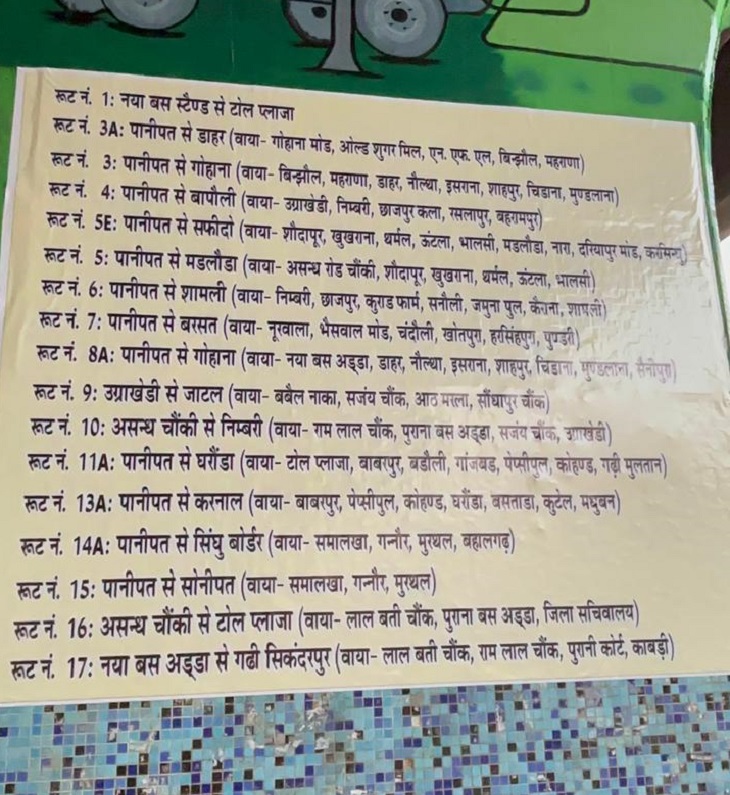 रूट नं. 1: नया बस स्टैण्ड से टोल प्लाजा
रूट नं. 3A: पानीपत से डाहर (वाया- गोहाना मोड, ओल्ड शुगर मिल, एन. एफ. एल, बिन्झौल, महराणा)
रूट नं. 3: पानीपत से गोहाना (वाया- बिन्झौल, महराणा, डाहर, नौल्था, इसराना, शाहपुर, चिडाना, मुण्डलाना)
रूट नं. 4: पानीपत से बापौली (वाया- उग्राखेडी, निम्बरी, छाजपुर कला, रसलापुर, बहरामपुर)
रूट नं. 5E: पानीपत से सफीदो (वाया- शौदापूर, खुखराना, थर्मल, ऊंटला, भालसी, मडलौडा, नारा, दरियापुर मोड,
रूट नं. 5: पानीपत से मडलौडा (वाया- असन्ध रोड चौंकी, शौदापूर, खुखराना, थर्मल, ऊंटला, भालसी)
रूट नं. 6: पानीपत से शामली (वाया- निम्बरी, छाजपुर, कुराड फार्म, सनौली, जमुना पुल, कैराना, शामली)
रूट नं. 7: पानीपत से बरसत (वाया- नूरवाला, भैसवाल मोड, चंदौली, खोतपुरा, हरसिंहपुरा, पुण्डरी)
रूट नं. 8A: पानीपत से गोहाना (वाया- नया बस अड्डा, डाहर, नौल्था, इसराना, शाहपुर, चिडाना, मुण्डलाना, सैनीपुरा)
रूट नं. 9: उग्राखेडी से जाटल (वाया- बबैल नाका, सजंय चौंक, आठ मरला, सौंधापुर चौंक)
रूट नं. 10: असन्ध चौंकी से निम्बरी (वाया- राम लाल चौंक, पुराना बस अड्डा, सजंय चौंक, उग्राखेडी)
रूट नं. 11A: पानीपत से घरौंडा (वाया- टोल प्लाजा, बाबरपुर, बडौली, गांजबड, पेप्सीपुल, कोहण्ड, गढी मुलतान)
रूट नं. 13A: पानीपत से करनाल (वाया- बाबरपुर, पेप्सीपुल, कोहण्ड, घरौंडा, बसताडा, कुटेल, मधुबन)
रूट नं. 14A: पानीपत से सिंघु बोर्डर (वाया- समालखा, गन्नौर, मुरथल, बहालगढ़)
रूट नं. 15: पानीपत से सोनीपत (वाया- समालखा, गन्नौर, मुरथल)
रूट नं. 16: असन्ध चौंकी से टोल प्लाजा (वाया- लाल बती चौंक, पुराना बस अड्डा, जिला सचिवालय)
रूट नं. 17: नया बस अड्डा से गढी सिकंदरपुर (वाया- लाल बती चौंक, राम लाल चौंक, पुरानी कोर्ट, काबड़ी)